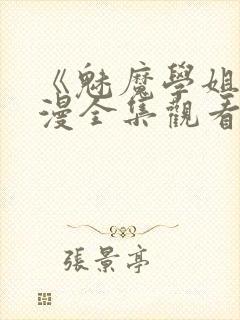 《魅魔學姐
漫全集觀看
張景亭